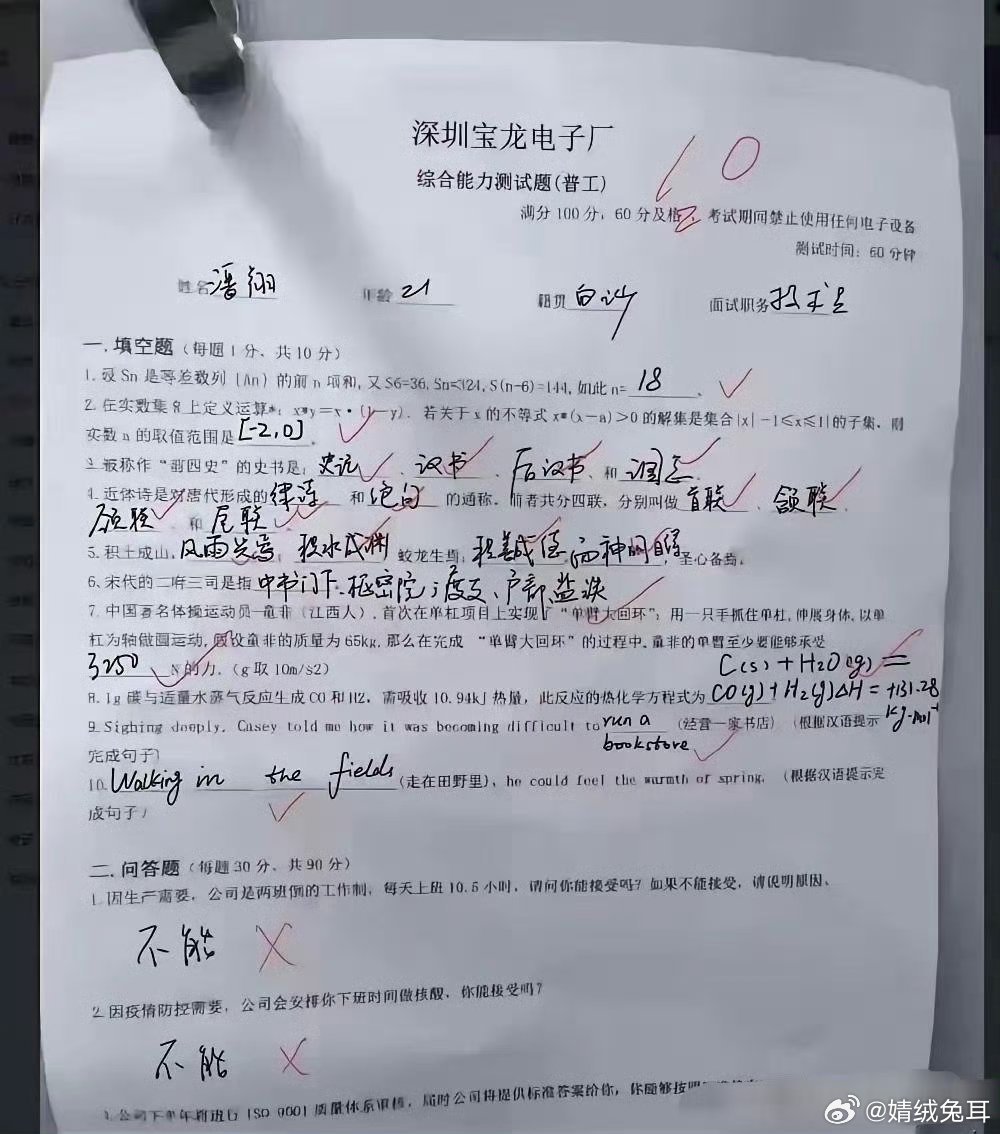 深圳宝龙电子厂
10
综合能力测试题(普工)
满分 100 分，60 分及格，考试期间禁止使用任何电子设备
测试时间：60 分钟
姓名 潘翔 年龄 21 籍贯 面试职务
一. 填空题（每题 1 分、共 10 分）
1. 设 Sn 是等差数列 {An} 的前 n 项和, 又 S6=36, Sn=324, S(n-6)=144, 如此 n= 18 .
2. 在实数集 R 上定义运算*：x*y＝x·(1－y)．若关于 x 的不等式 x*(x－a)>0 的解集是集合{x|－1≤x≤1}的子集、则
实数 a 的取值范围是 [-2,0] 。
3. 被称作“前四史”的史书是：史记、汉书、后汉书、和 三国志
4. 近体诗是对唐代形成的 律诗 和 绝句 的通称。前者共分四联，分别叫做 首联、颔联、
颈联 和 尾联
5. 积土成山, 风雨兴焉；积水成渊 蛟龙生焉；积善成德, 而神明自得, 圣心备焉。
6. 宋代的二府三司是指 中书门下、枢密院；度支、户部、盐铁
7. 中国著名体操运动员童非（江西人）, 首次在单杠项目上实现了“单臂大回环”：用一只手抓住单杠, 伸展身体, 以单
杠为轴做圆运动, 假设童非的质量为 65kg, 那么在完成 “单臂大回环”的过程中, 童非的单臂至少要能够承受
3250 N 的力.（g 取 10m/s2）
C(s)+H2O(g)=
8. 1g 碳与适量水蒸气反应生成 CO 和 H2, 需吸收 10.94kJ 热量, 此反应的热化学方程式为 CO(g)+H2(g) ΔH=+131.28
kJ·mol-1
9. Sighing deeply, Casey told me how it was becoming difficult to run a （经营一家书店）（根据汉语提示
bookstore
完成句子）
10. Walking in the fields (走在田野里), he could feel the warmth of spring. （根据汉语提示完
成句子）
二. 问答题（每题 30 分、共 90 分）
1. 因生产需要，公司是两班倒的工作制，每天上班 10.5 小时，请问你能接受吗？如果不能接受，请说明原因、
不能
2. 因疫情防控需要，公司会安排你下班时间做核酸，你能接受吗？
不能
3. 公司下半年将进行 ISO 9001 质量体系审核，届时公司将提供标准答案给你，你能够按照
@婧绒兔耳